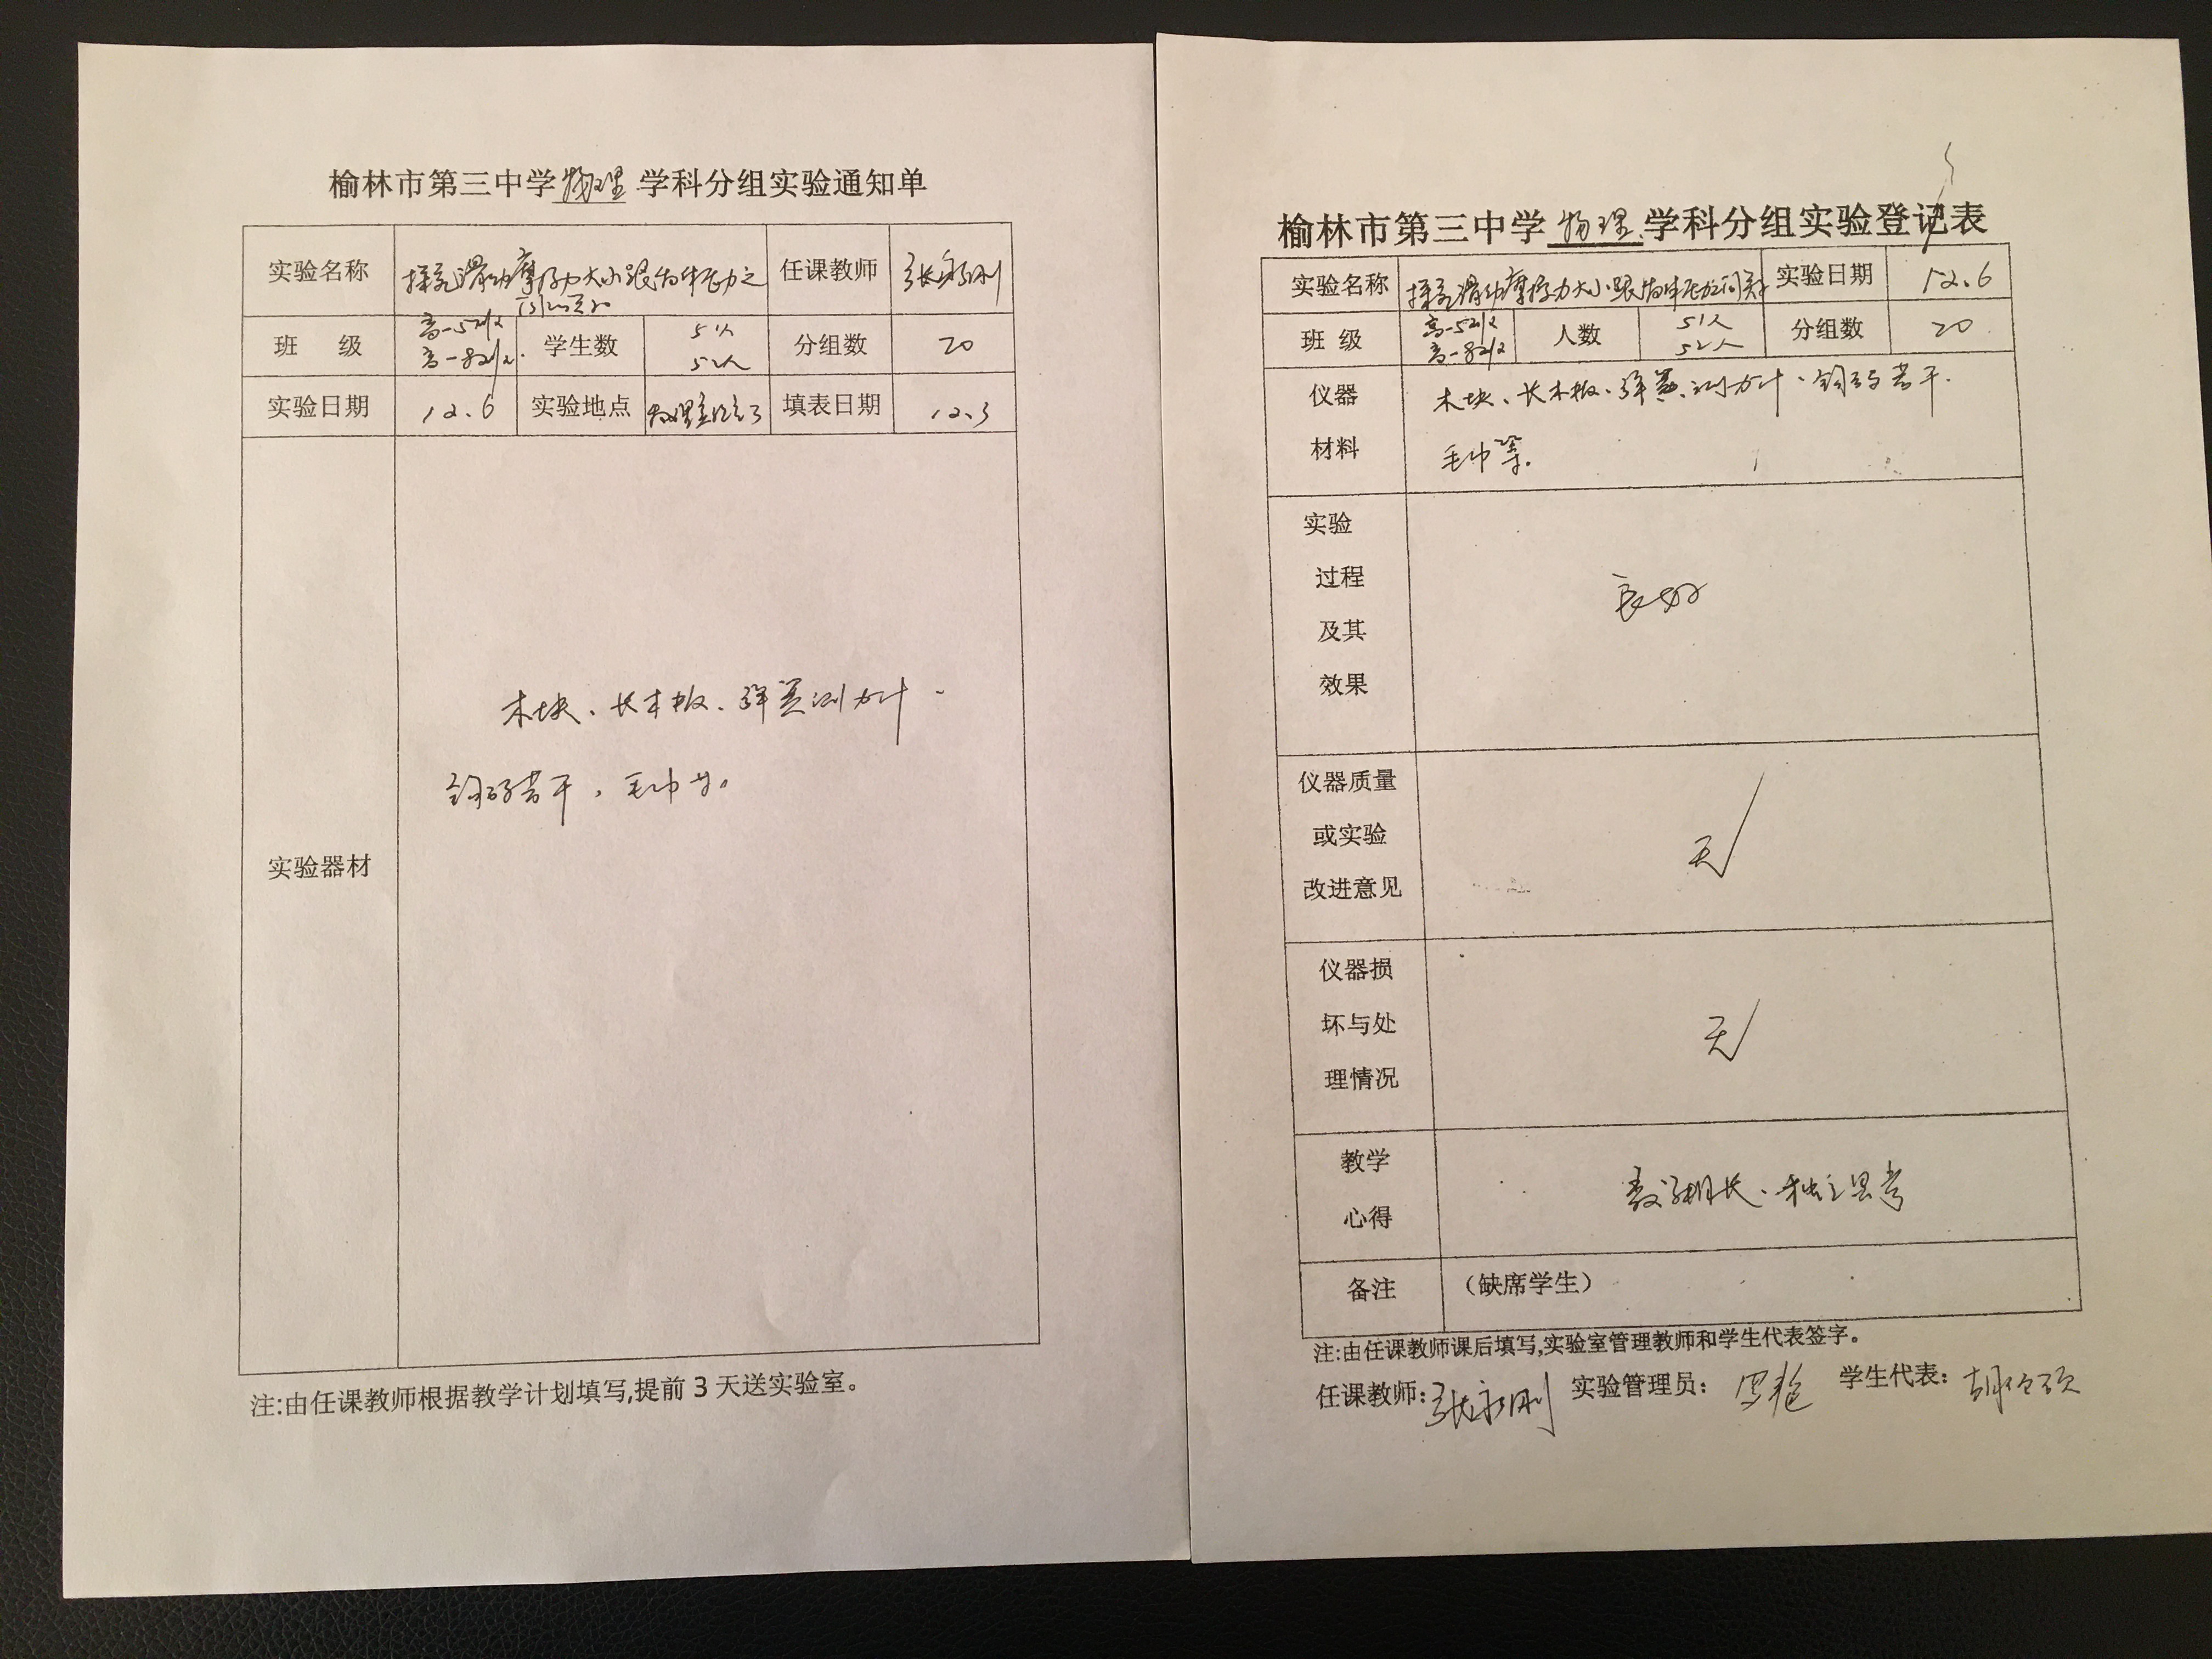 榆林市第三中学物理学科分组实验通知单
实验名称 探究滑动摩擦力大小跟物体压力之间的关系 任课教师 张永刚
班 级 高一5班 高一8班 学生数 51人 52人 分组数 20
实验日期 12.6 实验地点 物理实验室 填表日期 12.3
木块、长木板、弹簧测力计、
钩码若干,毛巾等。
实验器材
注:由任课教师根据教学计划填写,提前3天送实验室。
榆林市第三中学物理学科分组实验登记表
实验名称 探究滑动摩擦力大小跟物体压力之间关系 实验日期 12.6
班 级 高一5班 高一8班 人数 51人 52人 分组数 20
仪器 木块、长木板、弹簧测力计、钩码若干.
材料 毛巾等.
实验
过程 良好
及其
效果
仪器质量
或实验 无
改进意见
仪器损
坏与处 无
理情况
教学 教学相长、独立思考
心得
备注 (缺席学生)
注:由任课教师课后填写,实验室管理教师和学生代表签字。
任课教师:张永刚 实验管理员: 学生代表: